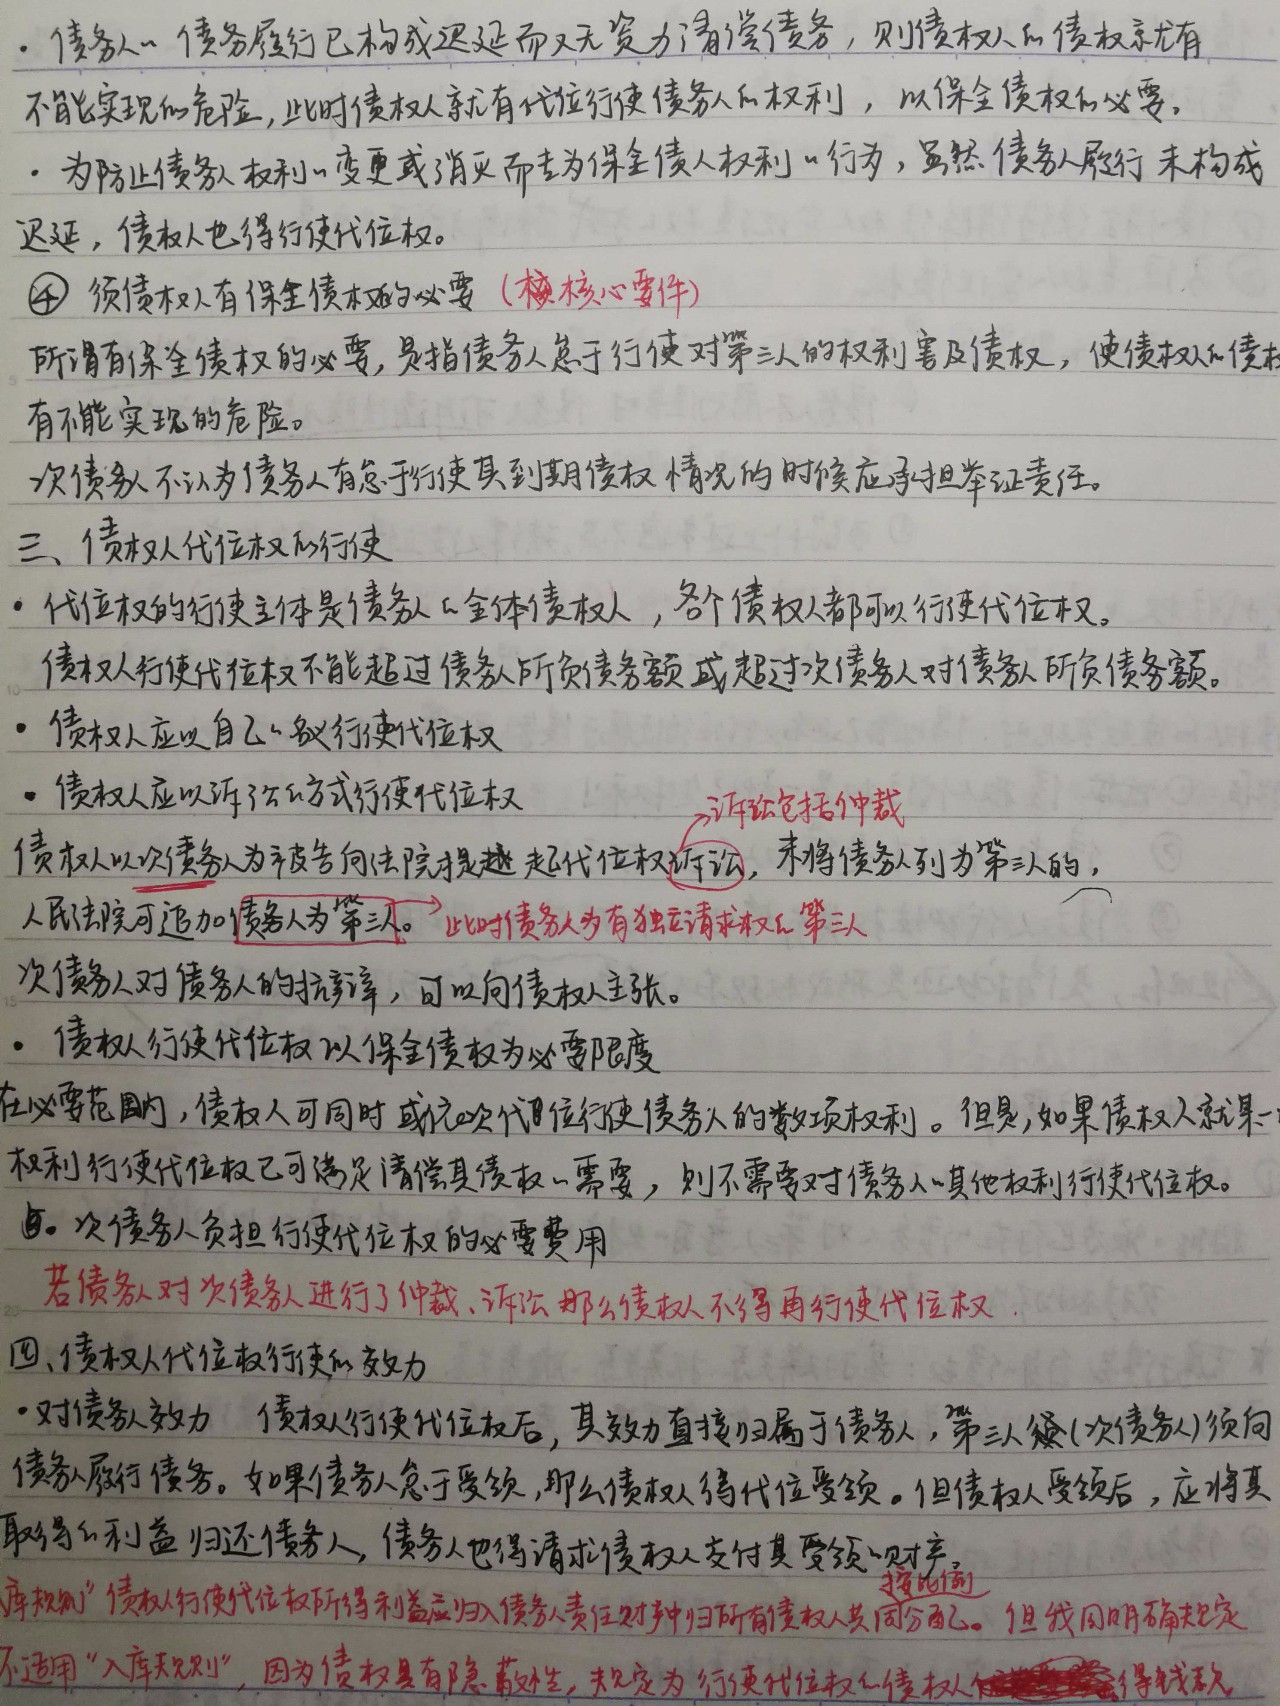 · 债务人的债务履行已构成迟延而又无资力清偿债务，则债权人的债权就有
不能实现的危险，此时债权人就有代位行使债务人的权利，以保全债权的必要。
· 为防止债务人权利的变更或消灭而去为保全债人权利的行为，虽然债务人履行未构成
迟延，债权人也得行使代位权。
④ 须债权人有保全债权的必要（核心要件）
所谓有保全债权的必要，是指债务人怠于行使对第三人的权利害及债权，使债权人的债权
有不能实现的危险。
次债务人不认为债务人有怠于行使其到期债权情况的时候应承担举证责任。
三、债权人代位权的行使
· 代位权的行使主体是债务人的全体债权人，各个债权人都可以行使代位权。
债权人行使代位权不能超过债务人所负债务额或超过次债务人对债务人所负债务额。
· 债权人应以自己的名义行使代位权
· 债权人应以诉讼的方式行使代位权
诉讼包括仲裁
债权人以次债务人为被告向法院提起代位权诉讼，未将债务人列为第三人的，
人民法院可追加债务人为第三人。此时债务人为有独立请求权的第三人
次债务人对债务人的抗辩，可以向债权人主张。
· 债权人行使代位权以保全债权为必要限度
在必要范围内，债权人可同时或依次代位行使债务人的数项权利。但是，如果债权人就某一
权利行使代位权已可满足清偿其债权的需要，则不需要对债务人的其他权利行使代位权。
次债务人负担行使代位权的必要费用
若债务人对次债务人进行了仲裁、诉讼那么债权人不得再行使代位权.
四、债权人代位权行使的效力
·对债务人效力 债权人行使代位权后，其效力直接归属于债务人，第三人（次债务人）须向
债务人履行债务。如果债务人怠于受领，那么债权人得代位受领。但债权人受领后，应将其
取得的利益归还债务人，债务人也得请求债权人支付其受领的财产。
按比例
库规则”债权人行使代位权所得利益应归入债务人责任财产中归所有债权人共同分配。但我国明确规定
不适用“入库规则”，因为债权具有隐蔽性，规定为行使代位权的债权人得钱款